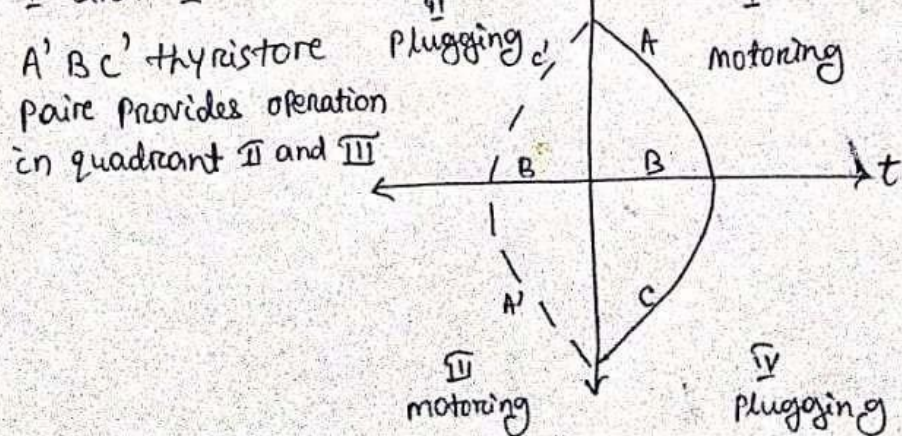 A' B C' thyristore
paire provides operation
in quadrant II and III
II
Plugging
motoring
C'
A
B
B
t
A'
C
III
motoring
IV
plugging